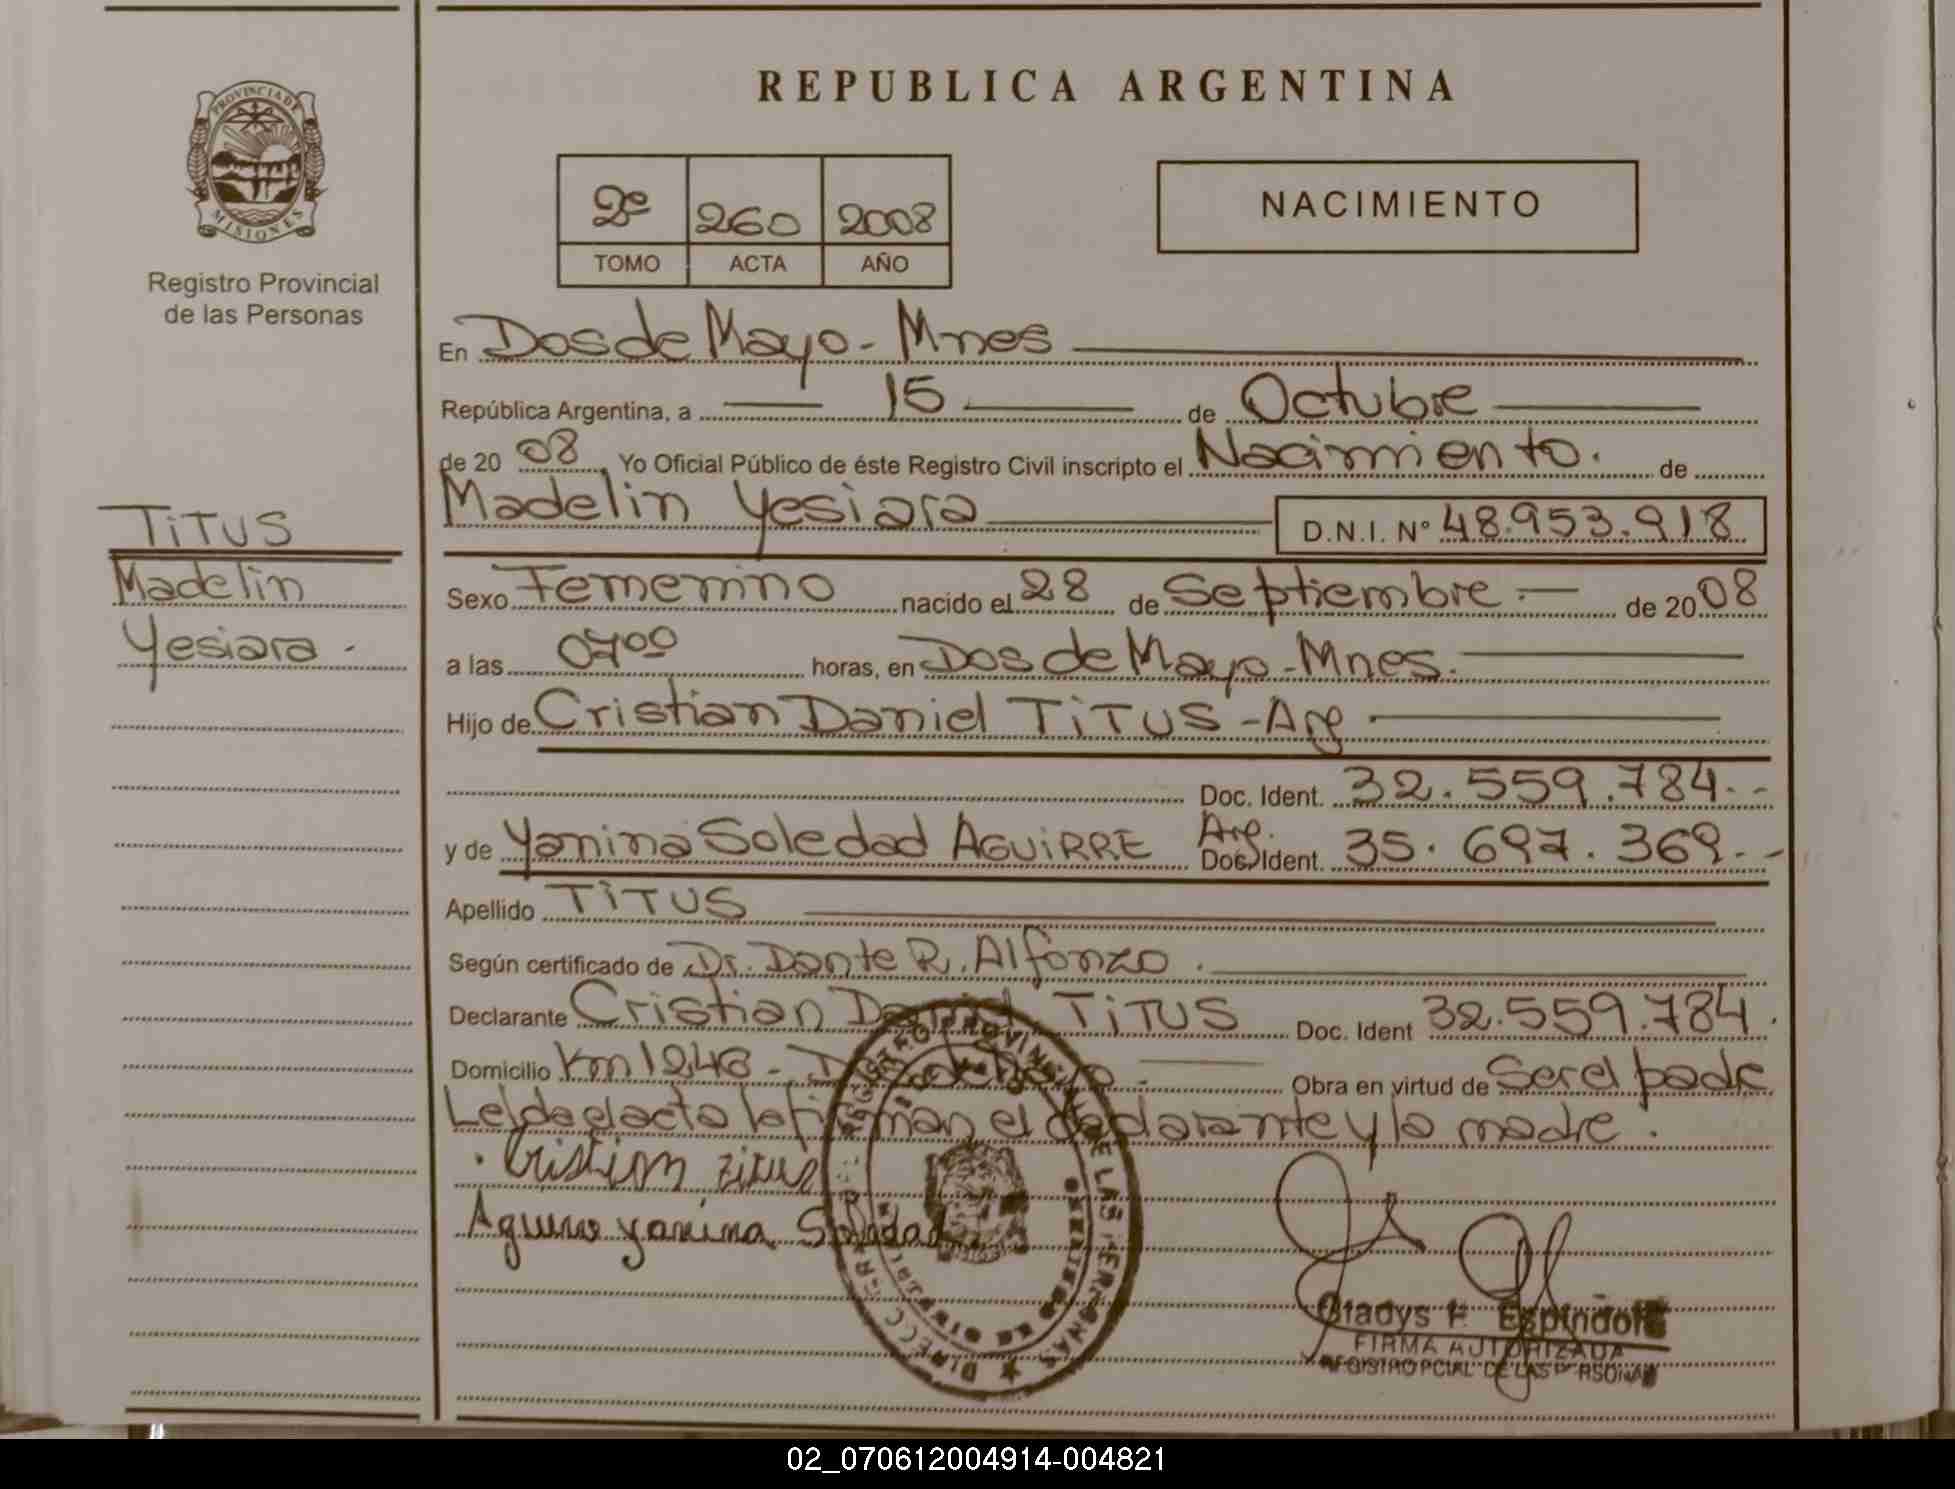 REPUBLICA ARGENTINA
PROVINCIA DE
MISIONES
Registro Provincial
de las Personas
2º 260 2008
TOMO ACTA AÑO
NACIMIENTO
En Dos de Mayo - Mnes
República Argentina, a 15 de Octubre
de 20 08, Yo Oficial Público de éste Registro Civil inscripto el Nacimiento. de
Madelin Yesiara D.N.I. Nº 48.953.918
TiTUS
Madelin
Yesiara -
Sexo Femenino nacido el 28 de Septiembre.- de 20 08
a las 07⁰⁰ horas, en Dos de Mayo - Mnes.
Hijo de Cristian Daniel TiTUS - Arg
Doc. Ident. 32.559.784.--
y de Yanina Soledad AGUiRRE Arg. Doc. Ident. 35.697.369.--
Apellido TiTUS
Según certificado de Dr. Dante R. Alfonzo.
Declarante Cristian Daniel TiTUS Doc. Ident 32.559.784.
Domicilio Km 1248 - Dos de Mayo. Obra en virtud de Ser el padre
Leida el acta la firman el declarante y la madre.
Cristian Titus
Aguirre yanina Soledad
Gladys F. Espindola
FIRMA AUTORIZADA
REGISTRO PCIAL DE LAS PERSONAS
02_070612004914-004821